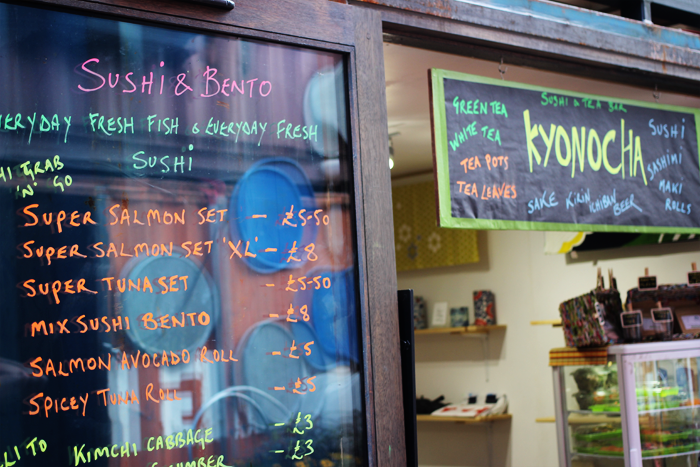 SUSHI & BENTO
EVERYDAY FRESH FISH & EVERYDAY FRESH
SUSHI
GRAB
'N' GO
SUPER SALMON SET - £5-50
SUPER SALMON SET 'XL' - £8
SUPER TUNA SET - £5-50
MIX SUSHI BENTO - £8
SALMON AVOCADO ROLL - £5
SPICEY TUNA ROLL - £5
KIMCHI CABBAGE - £3
- £3
SUSHI & TEA BAR
KYONOCHA
GREEN TEA
WHITE TEA
TEA POTS
TEA LEAVES
SUSHI
SASHIMI
MAKI
ROLLS
SAKE KIRIN ICHIBAN BEER